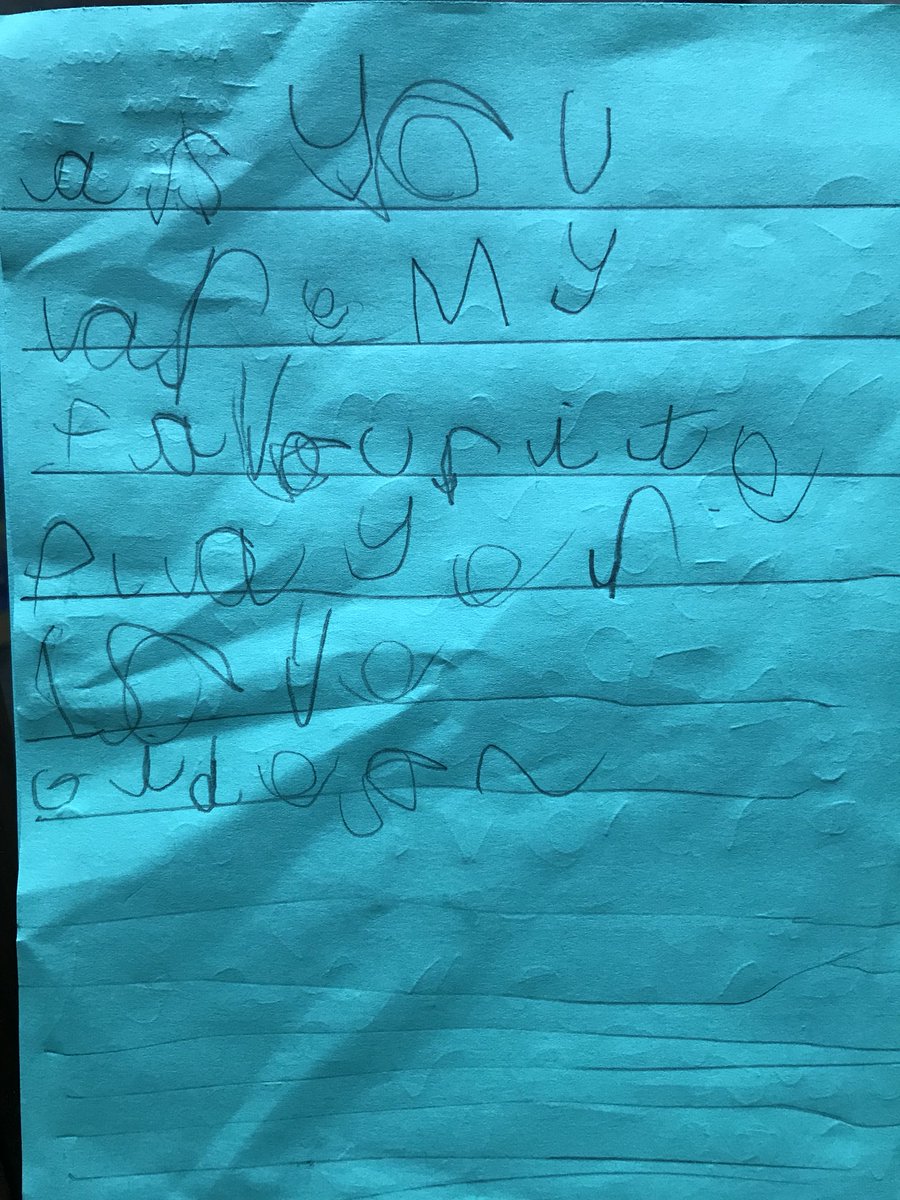 as you
are My
favourite
player
love
Gideon